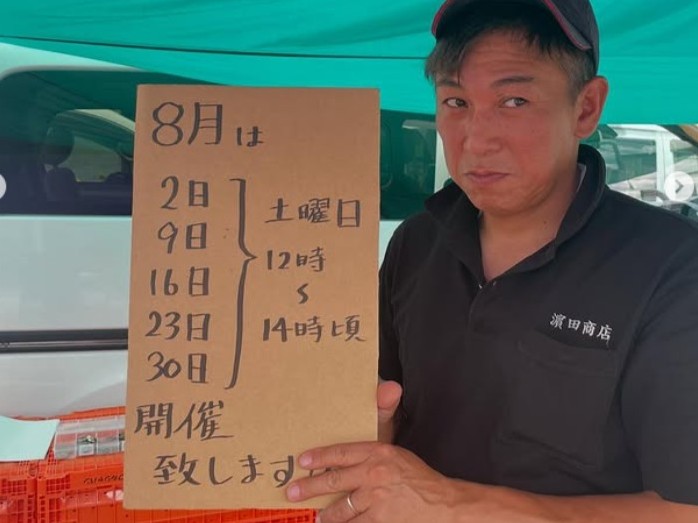 8月は
2日
9日
16日
23日
30日
土曜日
12時
〜
14時頃
開催
致します!
濵田商店